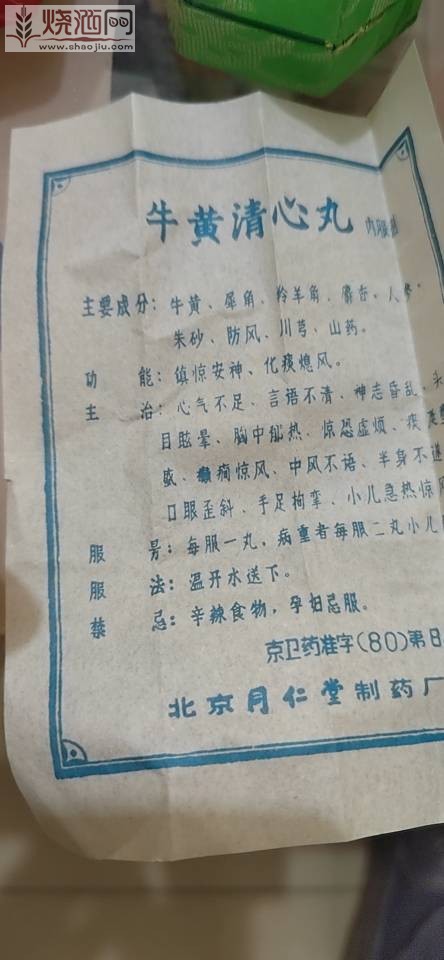 烧酒网
www.shaojiu.com
牛黄清心丸 内服
主要成分：牛黄、犀角、羚羊角、麝香、人参、
朱砂、防风、川芎、山药。
功能：镇惊安神、化痰熄风。
主治：心气不足、言语不清、神志昏乱、头
目眩晕、胸中郁热、惊恐虚烦、痰涎壅
盛、癫痫惊风、中风不语、半身不遂
口眼歪斜、手足拘挛、小儿急热惊风
服量：每服一丸，病重者每服二丸小儿
服法：温开水送下。
禁忌：辛辣食物，孕妇忌服。
京卫药准字(80)第8
北京同仁堂制药厂